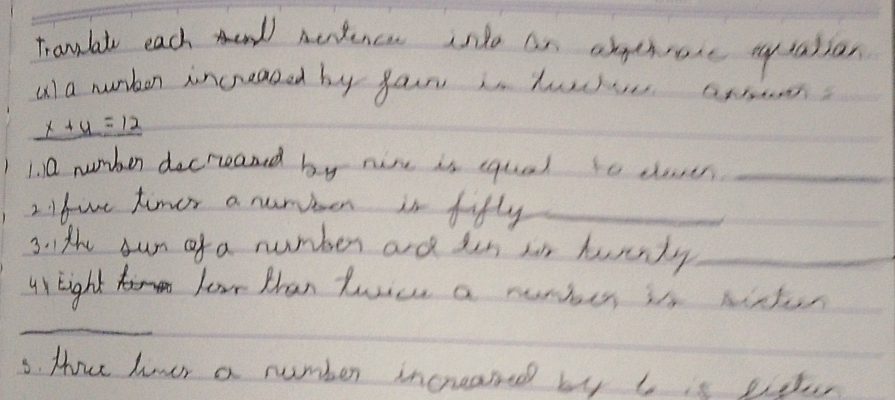 Translate each sentence into an algebraic equation
(x) a number increased by four is twelve answer:
x + 4 = 12
1.) a number decreased by nine is equal to eleven
2.) five times a number is fifty
3.) the sum of a number and ten is twenty
4) Eight less than twice a number is sixteen
5. three times a number increased by 6 is